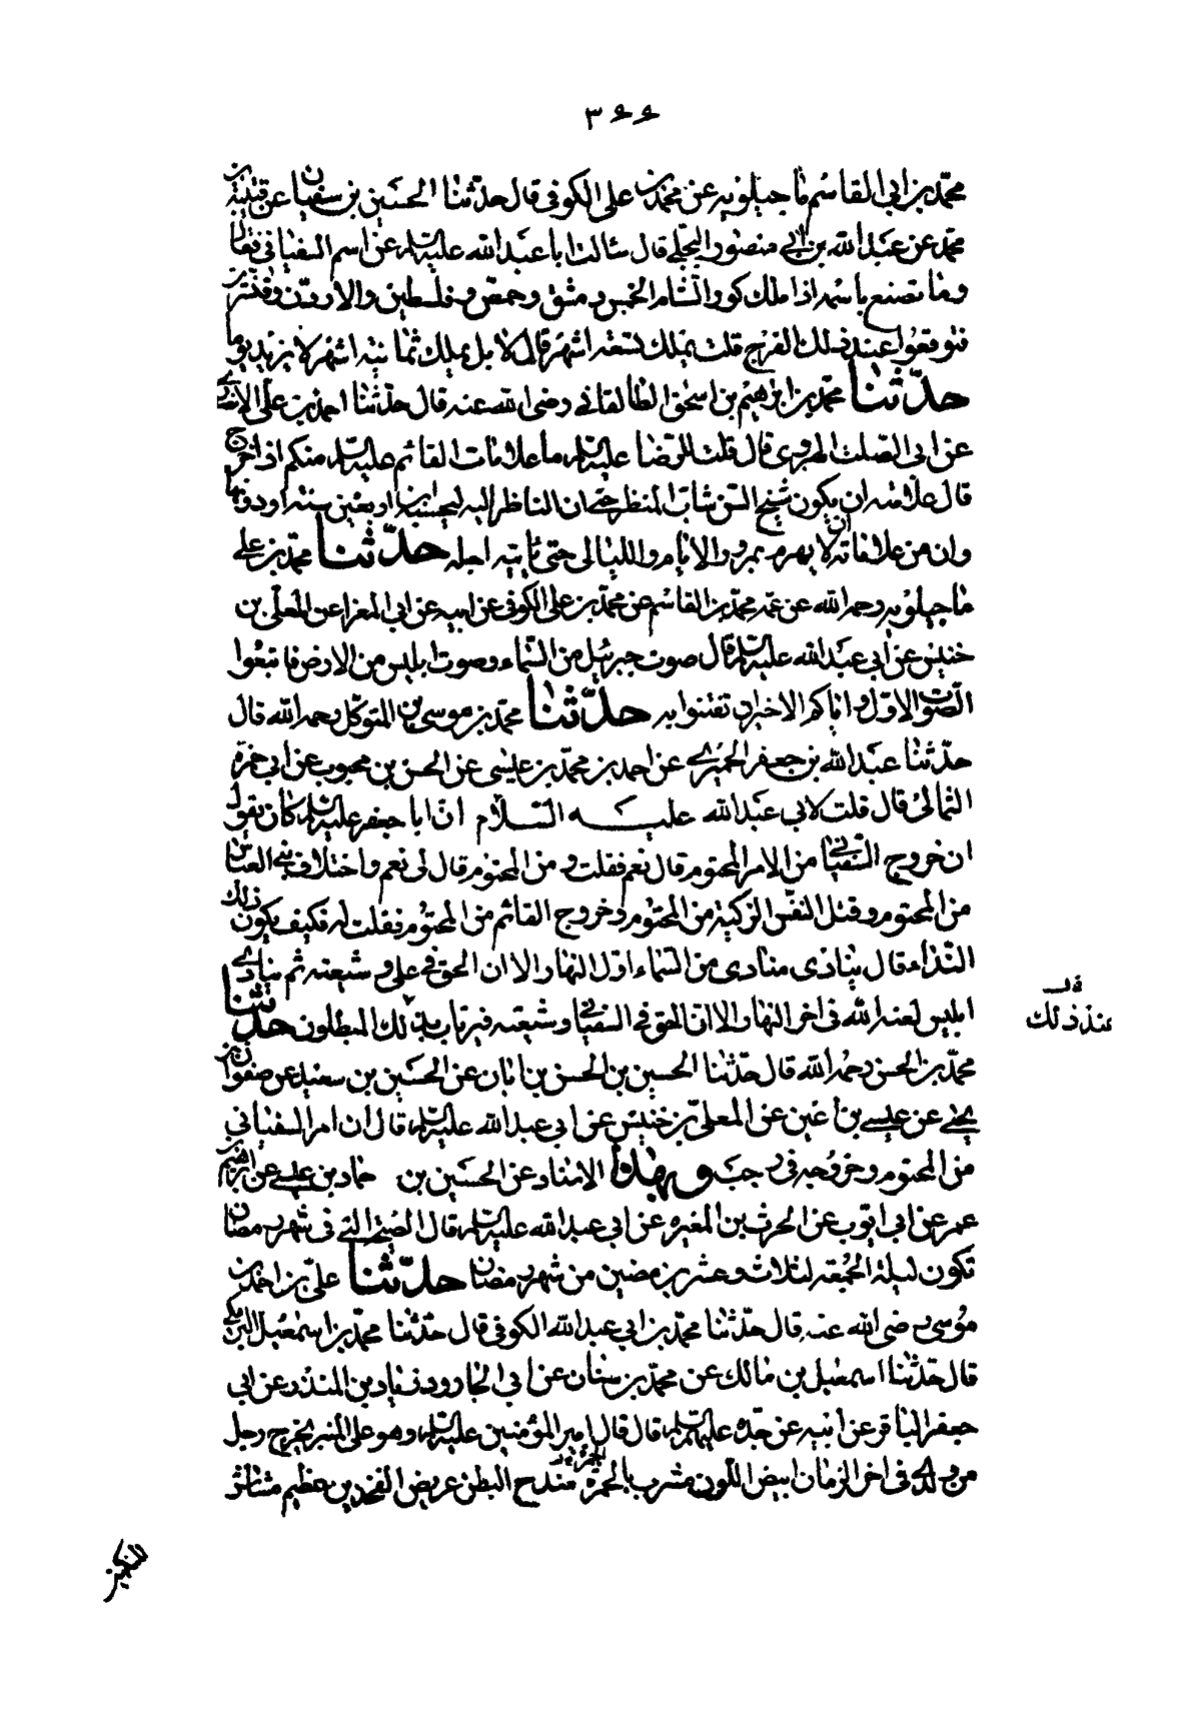 ٣٤٤
محمد بن ابى القاسم ما جيلويه عن محمد بن على الكوفى قال حدثنا الحسين بن سفيان عن قتيبة بن
محمد عن عبدالله بن ابى منصور البجلى قال سالت ابا عبدالله عليه السلم عن اسم السفيانى فقال
وما تصنع باسمه اذا ملك كور الشام الخمس دمشق وحمص وفلسطين والاردن وقنسرين
فتوقعوا عند ذلك الفرج قلت يملك تسعه اشهر قال لا بل يملك ثمانيه اشهر لا يزيد يوما
حدّثنا محمد بن ابرهيم بن اسحق الطالقانى رضى الله عنه قال حدثنا احمد بن على الانصارى
عن ابى الصلت الهروى قال قلت للرضا عليه السلم ما علامات القائم عليه السلم منكم اذا خرج
قال علامته ان يكون شيخ السن شاب المنظر حتى ان الناظر اليه ليحسبه ابن اربعين سنه او دونها
وان من علاماته ان لا يهرم بمرور الايام والليالى حتى ياتيه اجله حدّثنا محمد بن على
ما جيلويه رحمه الله عن عمه محمد بن القاسم عن محمد بن على الكوفى عن ابيه عن ابى المغرا عن المعلى بن
خنيس عن ابى عبدالله عليه السلم قال صوت جبرئيل من السماء وصوت ابليس من الارض فاتبعوا
الصوت الاول واياكم الاخير ان تفتنوا به حدّثنا محمد بن موسى بن المتوكل رحمه الله قال
حدثنا عبدالله بن جعفر الحميرى عن احمد بن محمد بن عيسى عن الحسن بن محبوب عن ابى حمزه
الثمالى قال قلت لابى عبدالله عليه السلام ان ابا جعفر عليه السلم كان يقول
ان خروج السفيانى من الامر المحتوم قال نعم فقلت و من المحتوم قال لى نعم واختلاف بنى العباس
من المحتوم وقتل النفس الزكية من المحتوم وخروج القائم من المحتوم فقلت له فكيف يكون ذلك
النداء قال ينادى منادى من السماء اول النهار الا ان الحق فى على و شيعته ثم ينادى
ابليس لعنه الله فى اخر النهار الا ان الحق فى السفيانى وشيعته فيرتاب بذلك المبطلون حدّثنا
عند ذلك
محمد بن الحسن رحمه الله قال حدثنا الحسين بن الحسن بن ابان عن الحسين بن سعيد عن صفوان بن
يحيى عن عيسى بن اعين عن المعلى بن خنيس عن ابى عبدالله عليه السلم قال ان امر السفيانى
من المحتوم وخروجه فى رجب وبهذا الاسناد عن الحسين بن حماد بن عيسى عن ابرهيم بن
عمر عن ابى ايوب عن الحرث بن المغيره عن ابى عبدالله عليه السلم قال الصيحة التى فى شهر رمضان
تكون ليلة الجمعه لثلاث وعشرين مضين من شهر رمضان حدّثنا على بن احمد بن
موسى رضى الله عنه قال حدثنا محمد بن ابى عبدالله الكوفى قال حدثنا محمد بن اسمعيل البرمكى
قال حدثنا اسمعيل بن مالك عن محمد بن سنان عن ابى الجارود زياد بن المنذر عن ابى
جعفر الباقر عن ابيه عن جده عليهم السلم قال قال امير المؤمنين عليه السلم وهو على المنبر يخرج رجل
من ولدى فى اخر الزمان ابيض اللون مشرب بالحمرة مندح البطن عريض الفخذين عظيم مشاش
المنكبين